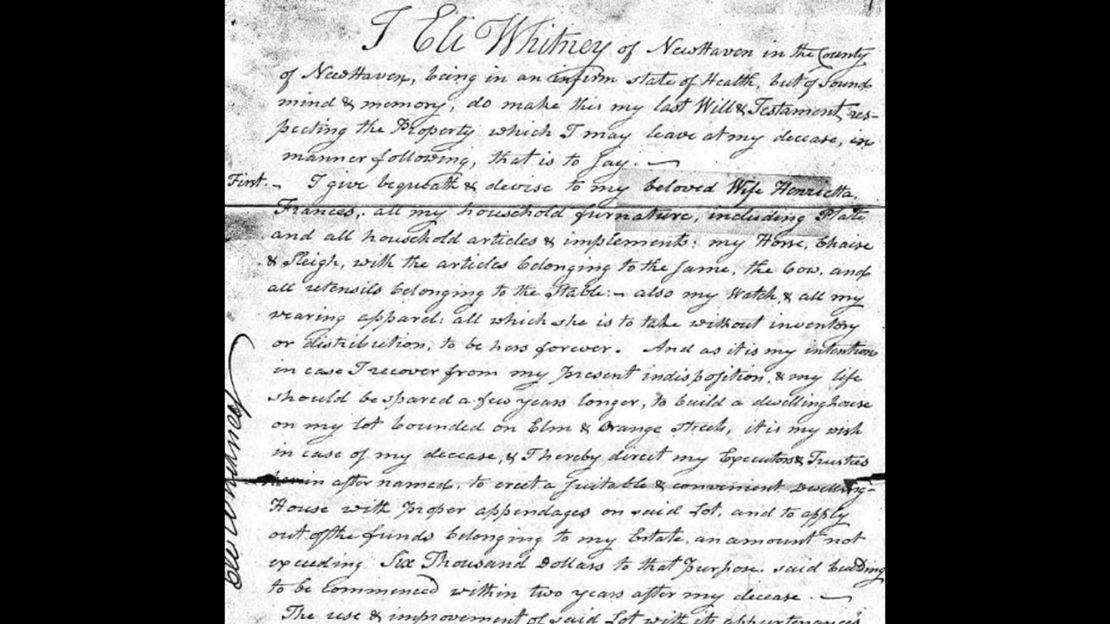 I Eli Whitney of New Haven in the County
of New Haven, being in an infirm state of Health, but of sound
mind & memory, do make this my last Will & Testament, res-
pecting the Property which I may leave at my decease, in
manner following, that is to say. —
First. — I give bequeath & devise to my beloved Wife Henrietta
Frances, all my household furnature, including Plate
and all household articles & implements: my Horse, Chaise
& Sleigh, with the articles belonging to the same, the Cow, and
all utensils belonging to the Stable: — also my Watch, & all my
wearing apparel: all which she is to take without inventory
or distribution, to be hers forever. And as it is my intention
in case I recover from my present indisposition, & my life
should be spared a few years longer, to build a dwelling house
on my lot bounded on Elm & Orange streets, it is my wish
in case of my decease, & I hereby direct my Executors & Trustees
herein after named, to erect a suitable & convenient Dwelling-
House with proper appendages on said Lot, and to apply
out of the funds belonging to my Estate, an amount not
exceeding Six Thousand Dollars to that purpose. said building
to be commenced within two years after my decease. —
The use & improvement of said Lot with its appurtenances
Eli Whitney